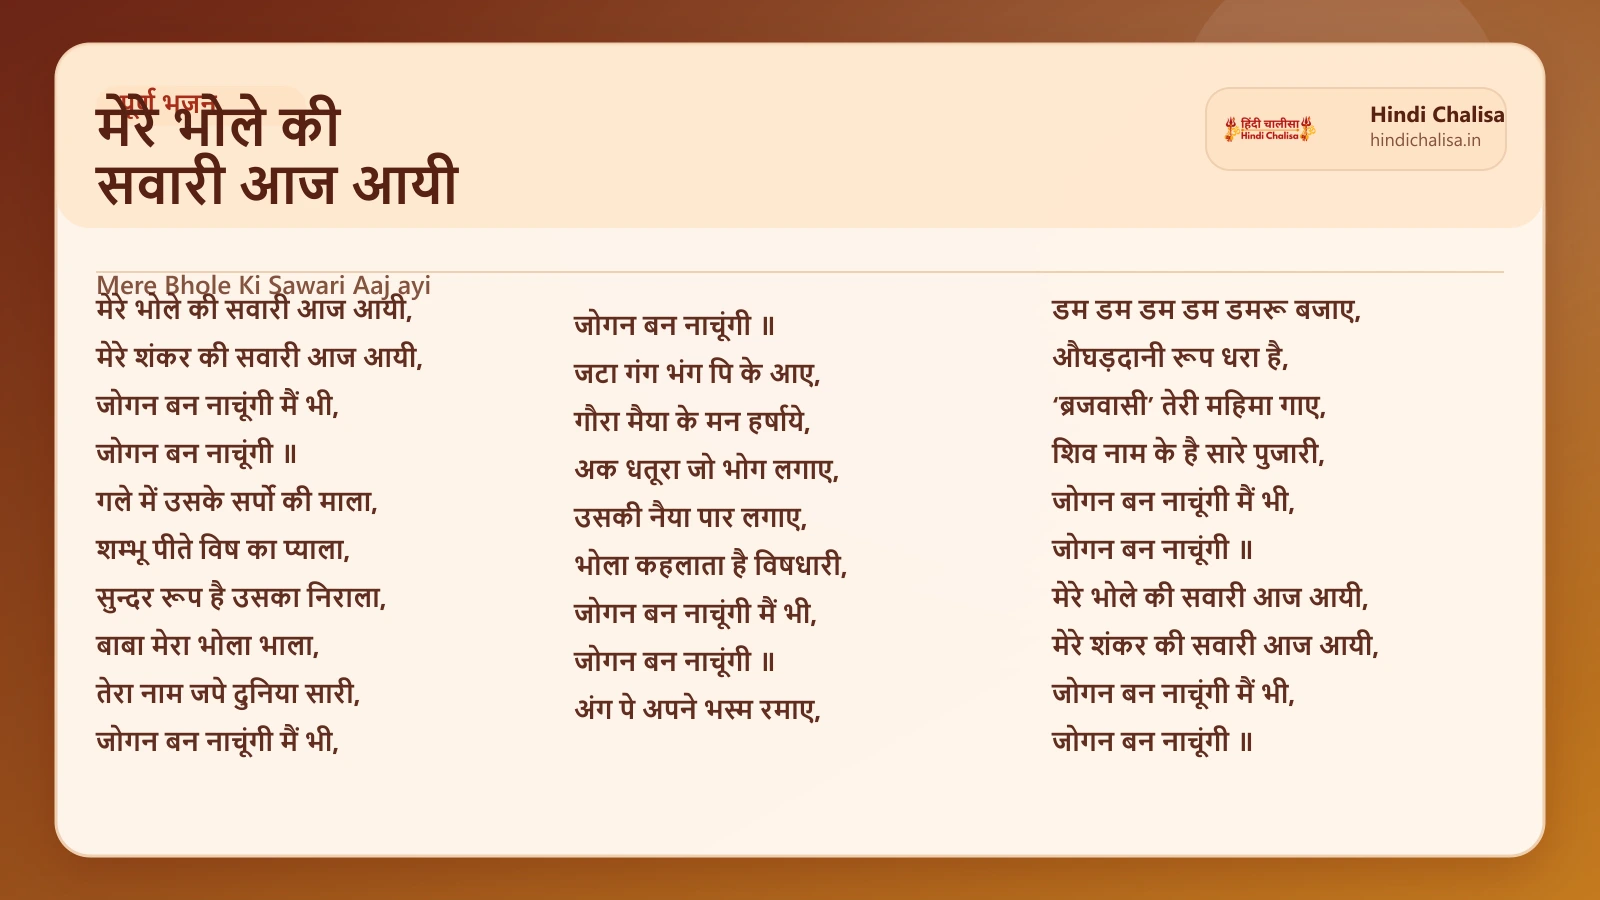 पूर्ण भजन
मेरे भोले की
सवारी आज आयी
हिंदी चालीसा
Hindi Chalisa
Hindi Chalisa
hindichalisa.in
Mere Bhole Ki Sawari Aaj ayi
मेरे भोले की सवारी आज आयी,
मेरे शंकर की सवारी आज आयी,
जोगन बन नाचूंगी मैं भी,
जोगन बन नाचूंगी ॥
गले में उसके सर्पो की माला,
शम्भू पीते विष का प्याला,
सुन्दर रूप है उसका निराला,
बाबा मेरा भोला भाला,
तेरा नाम जपे दुनिया सारी,
जोगन बन नाचूंगी मैं भी,
जोगन बन नाचूंगी ॥
जटा गंग भंग पि के आए,
गौरा मैया के मन हर्षाये,
अक धतूरा जो भोग लगाए,
उसकी नैया पार लगाए,
भोला कहलाता है विषधारी,
जोगन बन नाचूंगी मैं भी,
जोगन बन नाचूंगी ॥
अंग पे अपने भस्म रमाए,
डम डम डम डम डमरू बजाए,
औघड़दानी रूप धरा है,
‘ब्रजवासी’ तेरी महिमा गाए,
शिव नाम के है सारे पुजारी,
जोगन बन नाचूंगी मैं भी,
जोगन बन नाचूंगी ॥
मेरे भोले की सवारी आज आयी,
मेरे शंकर की सवारी आज आयी,
जोगन बन नाचूंगी मैं भी,
जोगन बन नाचूंगी ॥